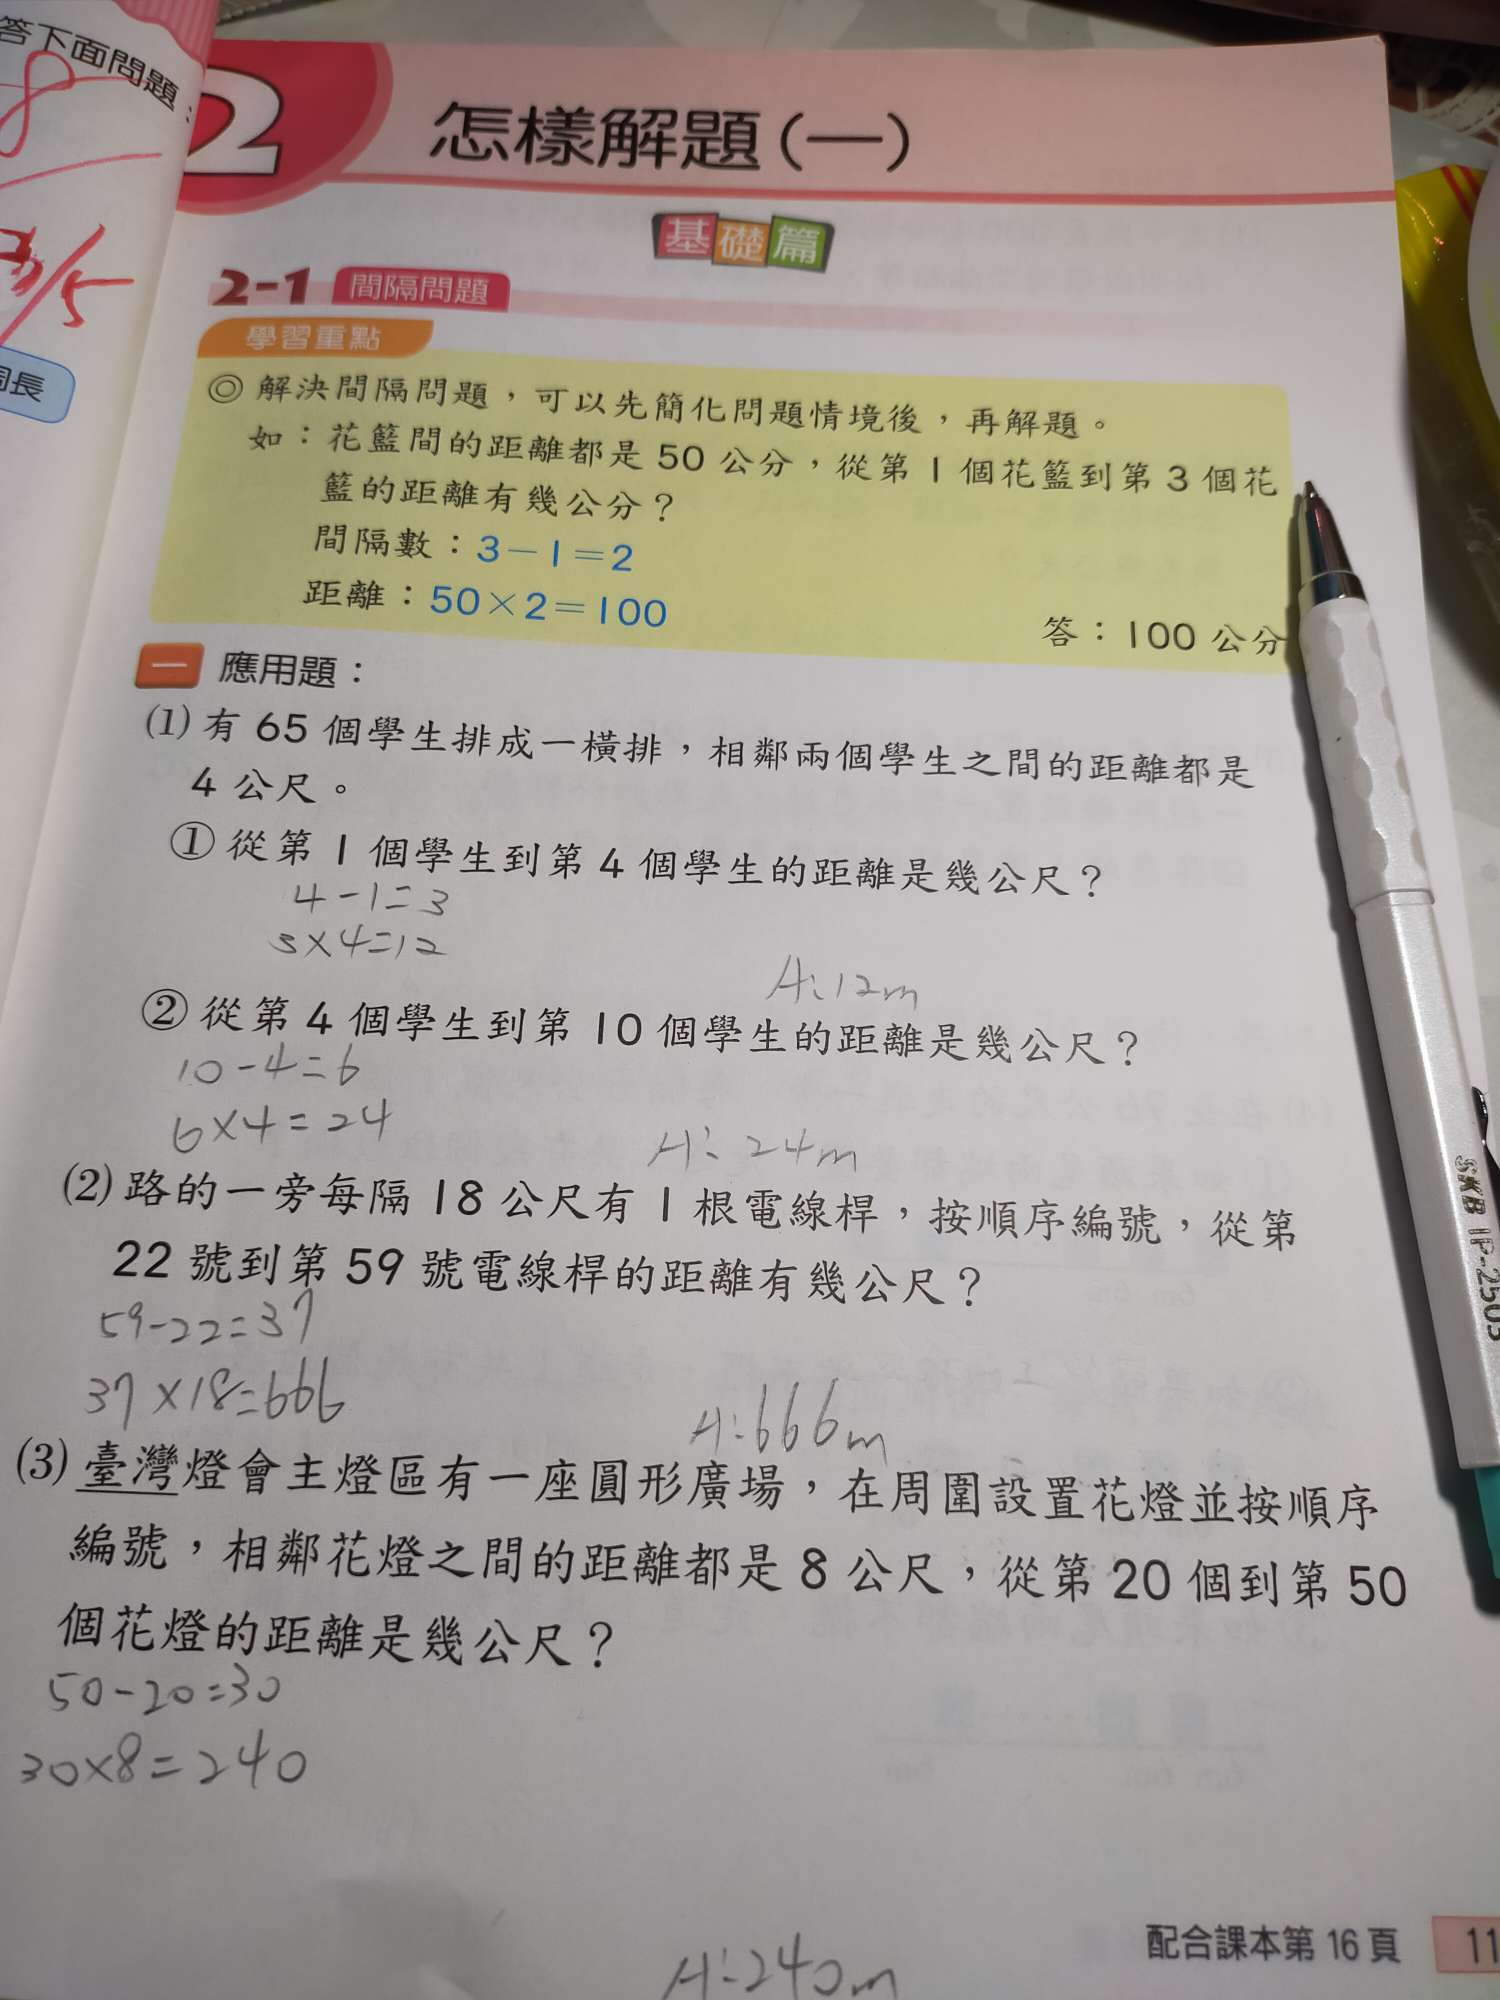 答下面問題：
8
周長
2 怎樣解題(一)
基礎篇
2-1 間隔問題
學習重點
◎解決間隔問題，可以先簡化問題情境後，再解題。
如：花籃間的距離都是50公分，從第1個花籃到第3個花
籃的距離有幾公分？
間隔數：3－1＝2
距離：50×2＝100
答：100公分
一 應用題：
(1)有65個學生排成一橫排，相鄰兩個學生之間的距離都是
4公尺。
①從第1個學生到第4個學生的距離是幾公尺？
4-1=3
3×4=12
A:12m
②從第4個學生到第10個學生的距離是幾公尺？
10-4=6
6×4=24
A:24m
(2)路的一旁每隔18公尺有1根電線桿，按順序編號，從第
22號到第59號電線桿的距離有幾公尺？
59-22=37
37×18=666
A:666m
(3)臺灣燈會主燈區有一座圓形廣場，在周圍設置花燈並按順序
編號，相鄰花燈之間的距離都是8公尺，從第20個到第50
個花燈的距離是幾公尺？
50-20=30
30×8=240
A:240m
配合課本第16頁
11
SKB IP-2505